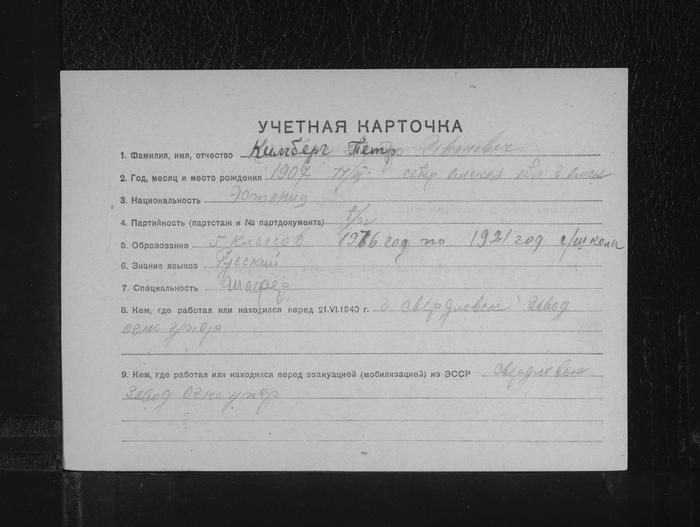 УЧЕТНАЯ КАРТОЧКА
1. Фамилия, имя, отчество Килберг Петр Иванович
2. Год, месяц и место рождения 1907 сибир омская обл г Омск
3. Национальность Эстонец
4. Партийность (партстаж и № партдокумента) б/п
5. Образование классов 1916 год по 1921 год с/школы
6. Знание языков Русский
7. Специальность Шофер
8. Кем, где работал или находился перед 21.VI.1940 г. г Свердловск Завод
огнеупор
9. Кем, где работал или находился перед эвакуацией (мобилизацией) из ЭССР Свердловск
Завод огнеупор